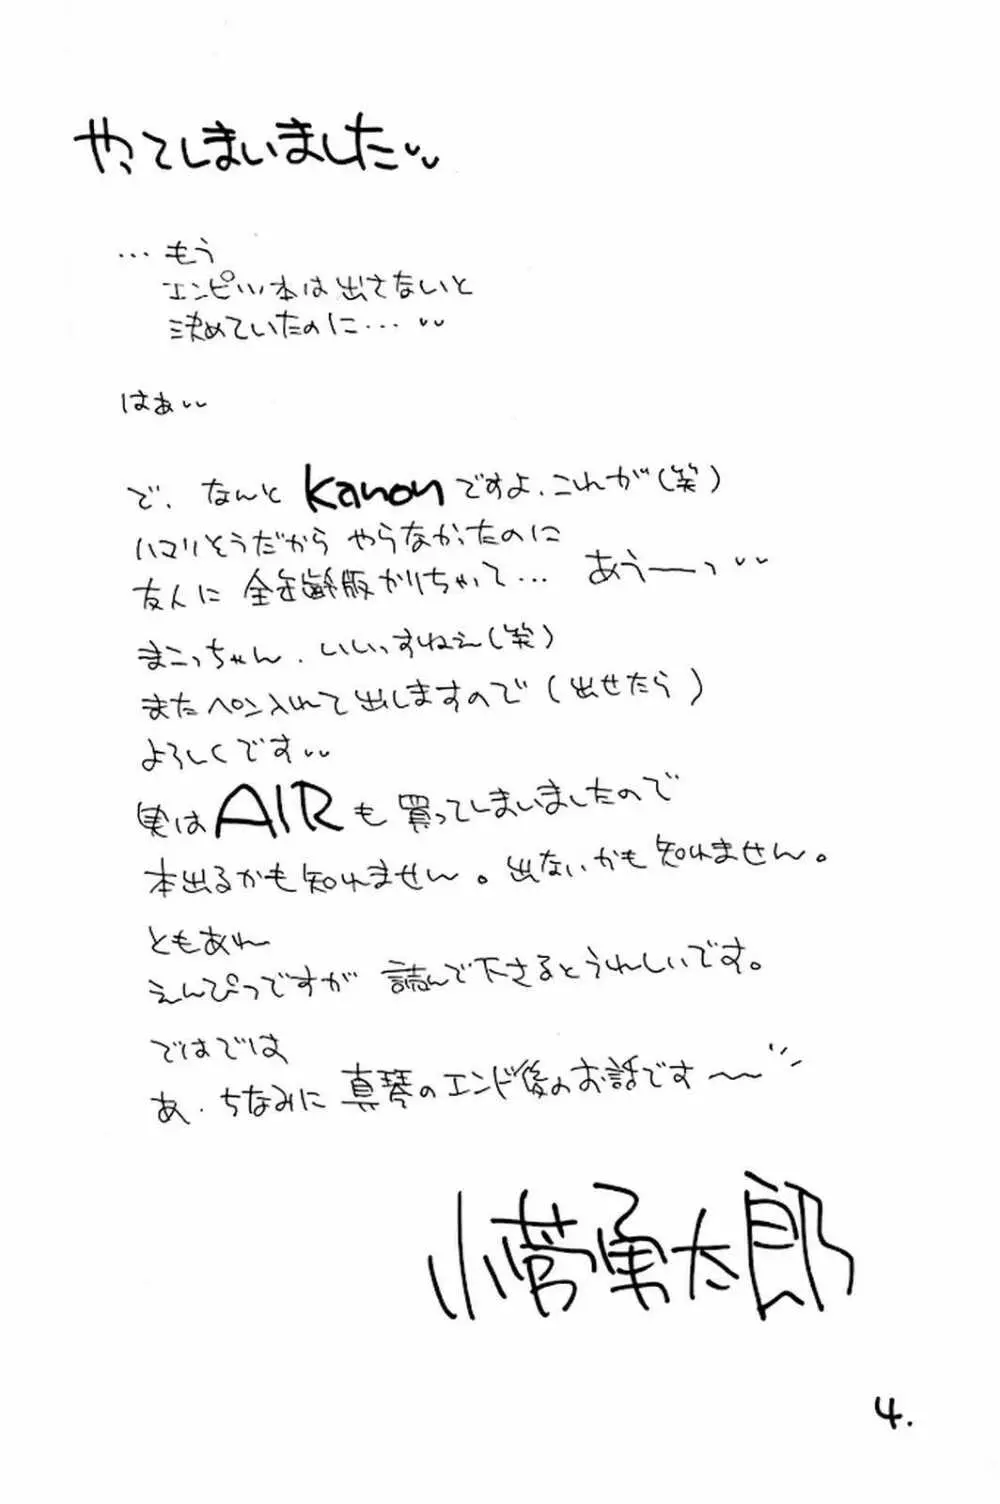 やってしまいました〃
…もう
エンピツ本は出さないと
決めていたのに…〃
はぁ〃
で、なんと kanonですよ、これが(笑)
ハマりそうだから やらなかったのに
友人に 全年齢版かりちゃって… あうーっ〃
まこっちゃん、いいっすねえ(笑)
またペン入れて出しますので(出せたら)
よろしくです〃
実は AIRも 買ってしまいましたので
本出るかも知れません。出ないかも知れません。
ともあれ
えんぴつですが 読んで下さるとうれしいです。
ではでは
あ、ちなみに 真琴のエンド後のお話です〜〜
小菅勇太郎
4.